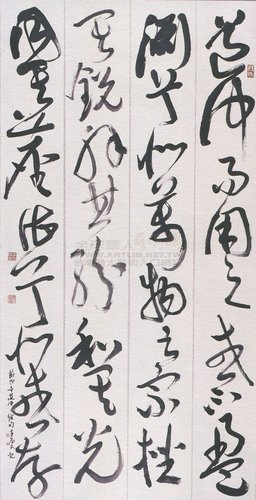 道沖而用之或不盈
淵兮似萬物之宗挫
其銳解其紛和其光
同其塵湛兮似或存